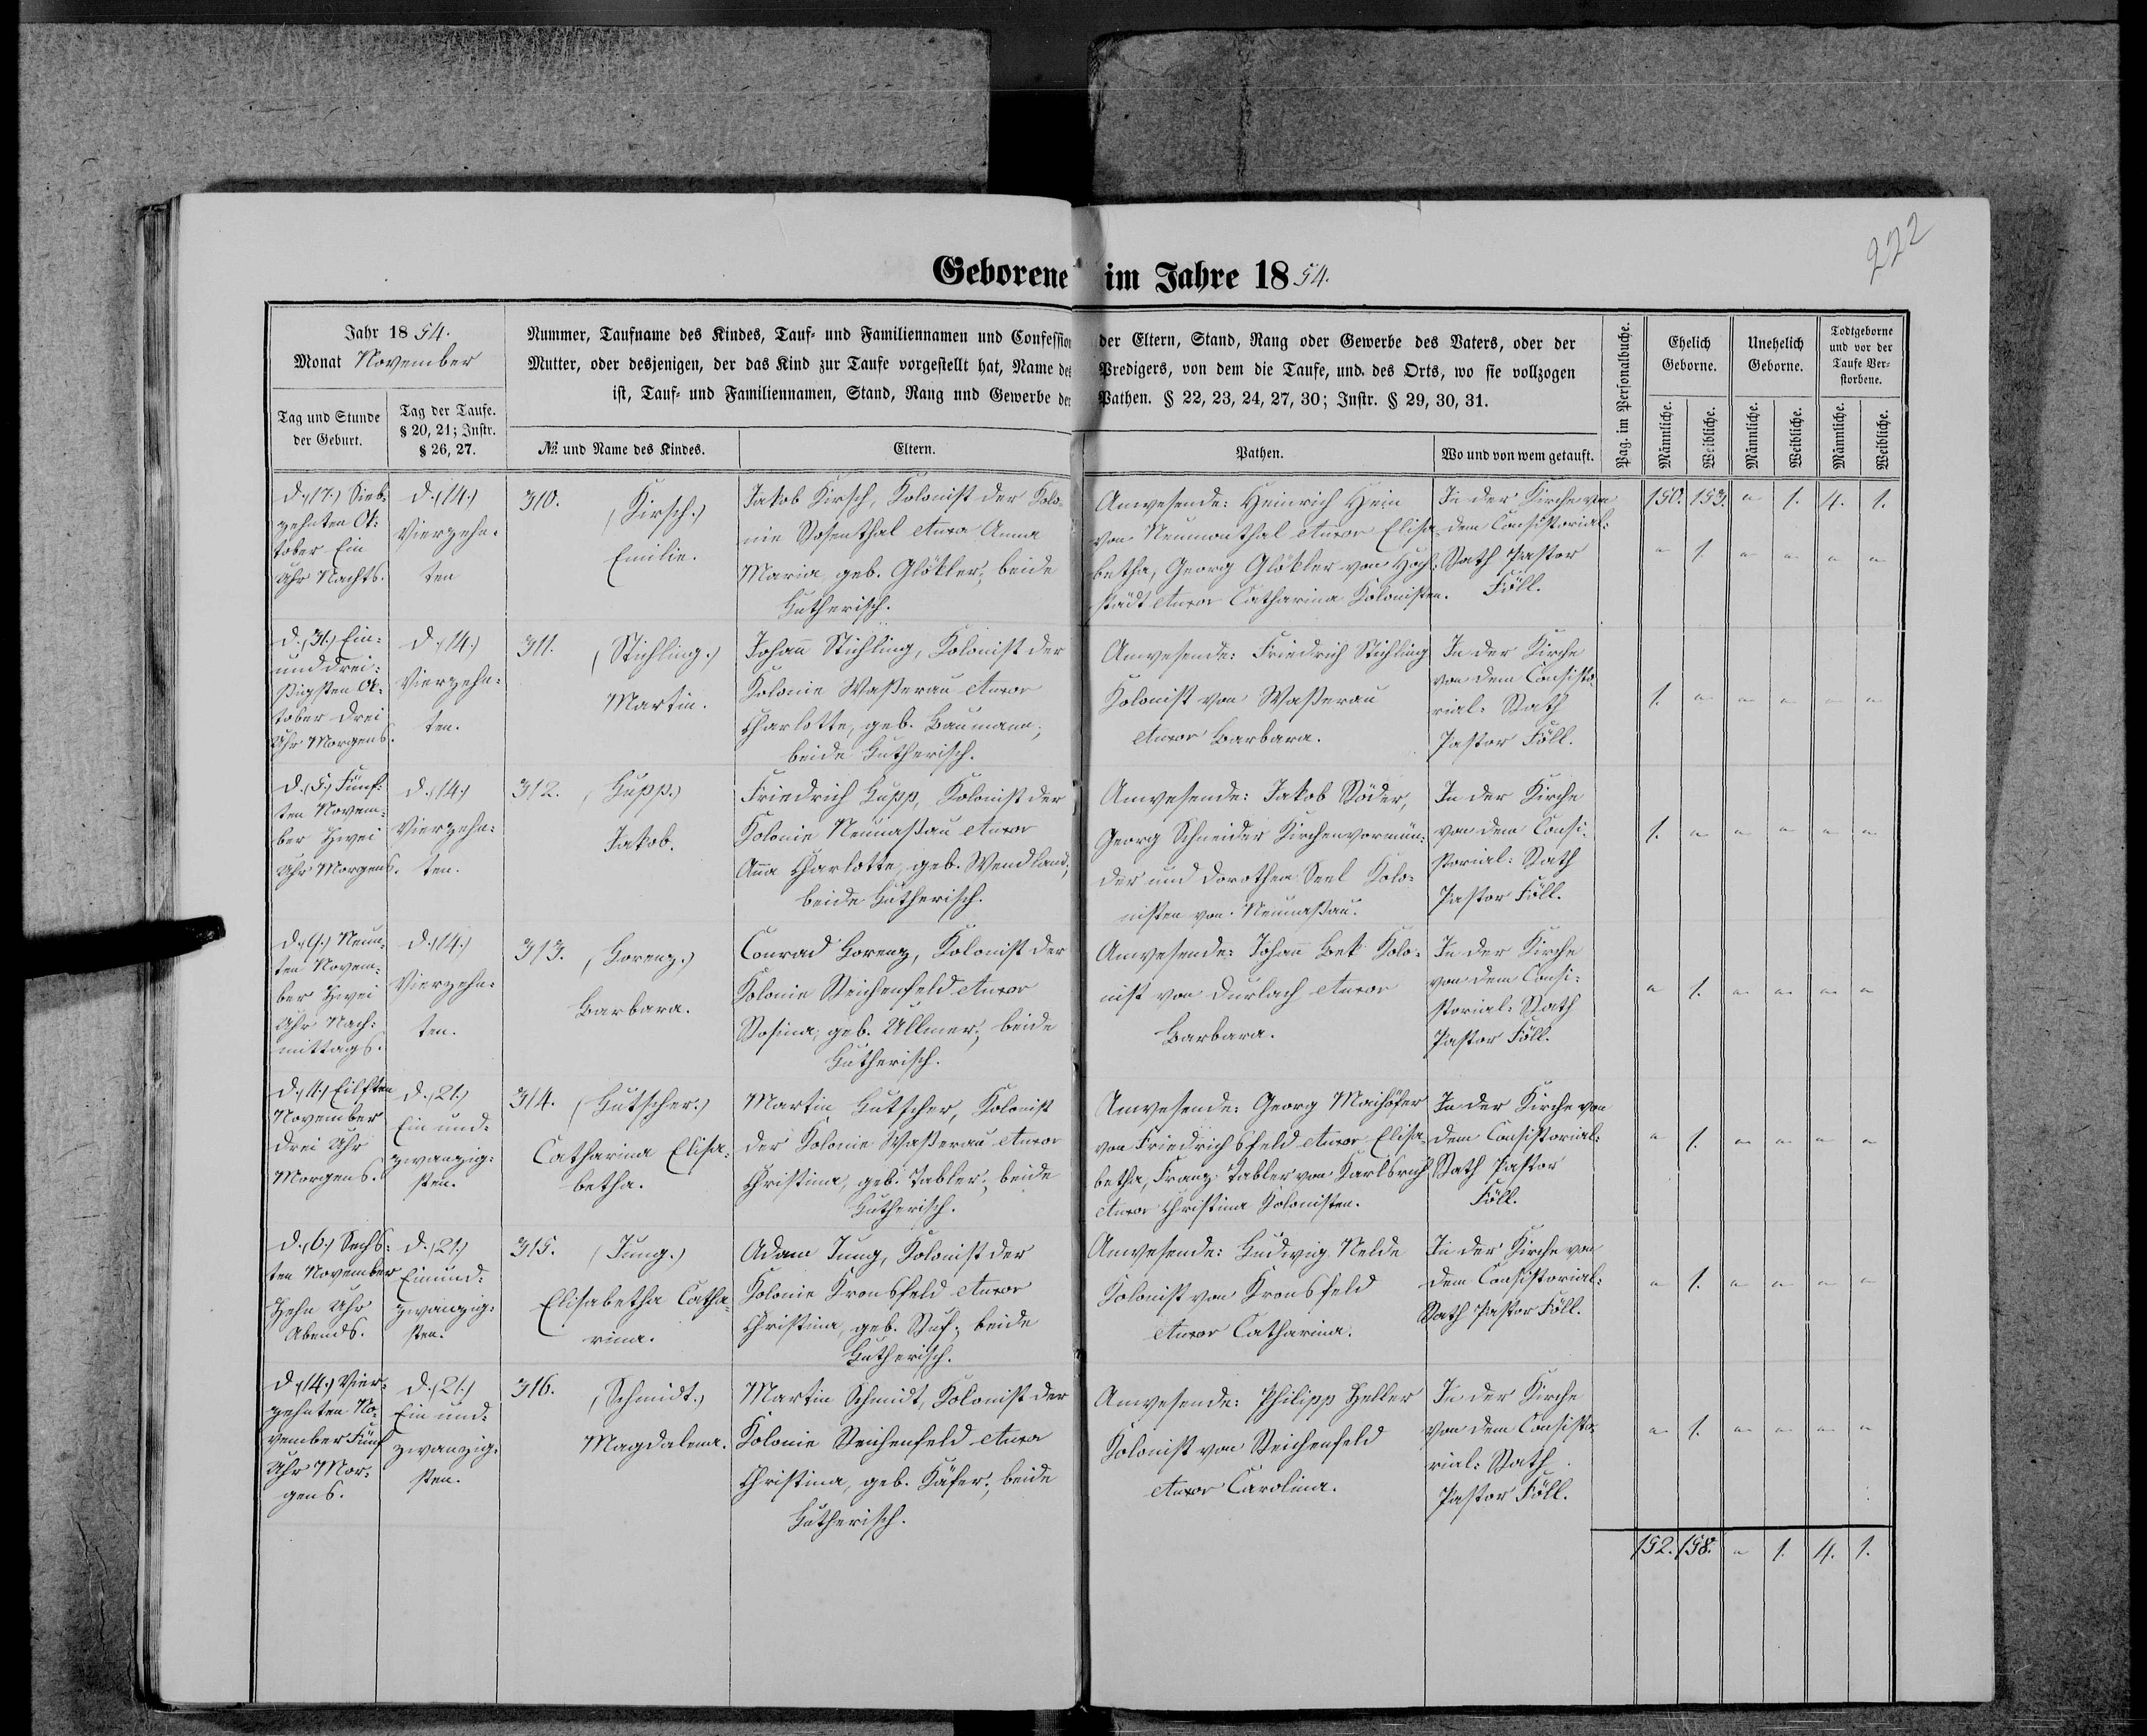 222
Geborene im Jahre 1854.
Jahr 1854.
Monat November
Tag und Stunde
der Geburt.
Tag der Taufe.
§ 20, 21; Instr.
§ 26, 27.
Nummer, Taufname des Kindes, Tauf- und Familiennamen und Confession der Eltern, Stand, Rang oder Gewerbe des Vaters, oder der
Mutter, oder desjenigen, der das Kind zur Taufe vorgestellt hat, Name des Predigers, von dem die Taufe, und des Orts, wo sie vollzogen
ist, Tauf- und Familiennamen, Stand, Rang und Gewerbe der Pathen. § 22, 23, 24, 27, 30; Instr. § 29, 30, 31.
№ und Name des Kindes.
Eltern.
Pathen.
Wo und von wem getauft.
Pag. im Personalbuche.
Ehelich
Geborne.
Unehelich
Geborne.
Todtgeborne
und vor der
Taufe Ver-
storbene.
Männliche.
Weibliche.
Männliche.
Weibliche.
Männliche.
Weibliche.
d. (17.) Sieb-
zehnten Ok-
tober Ein
Uhr Nachts.
d. (14.)
Vierzehn-
ten
310. (Kirsch.)
Emilie.
Jakob Kirsch, Kolonist der Kolo-
nie Rosenthal Anna
Maria geb. Glökler; beide
Lutherisch.
Anwesende: Heinrich Hein
von Neumonthal Elisa-
betha, Georg Glökler von Hoch-
städt Catharina Kolonisten.
In der Kirche von
dem Consistorial-
Rath Pastor
Föll.
150. 153. " 1. 4. 1.
" 1. " " " "
d. (31.) Ein-
unddrei-
ßigsten Ok-
tober Drei
Uhr Morgens.
d. (14.)
Vierzehn-
ten.
311. (Stichling.)
Martin.
Johann Stichling, Kolonist der
Kolonie Waßerau
Charlotte, geb. Baumann;
beide Lutherisch.
Anwesende: Friedrich Stichling
Kolonist von Waßerau
Barbara.
In der Kirche
von dem Consisto-
rial-Rath
Pastor Föll.
1. " " " " "
d. (5.) Fünf-
ten Novem-
ber Zwei
Uhr Morgens.
d. (14.)
Vierzehn-
ten.
312. (Lupp.)
Jakob.
Friedrich Lupp, Kolonist der
Kolonie Neunaßau
Anna Charlotte, geb. Wendland;
beide Lutherisch.
Anwesende: Jakob Röder,
Georg Schneider Kirchenvormün-
der und Dorothea Seel Kolo-
nisten von Neunaßau.
In der Kirche
von dem Consi-
storial-Rath
Pastor Föll.
1. " " " " "
d. (9.) Neun-
ten Novem-
ber Zwei
Uhr Nach-
mittags.
d. (14.)
Vierzehn-
ten.
313. (Lorenz.)
Barbara.
Conrad Lorenz, Kolonist der
Kolonie Reichenfeld
Rosina, geb. Ullmer; beide
Lutherisch.
Anwesende: Johann Bek Kolo-
nist von Durlach
Barbara.
In der Kirche
von dem Consi-
storial-Rath
Pastor Föll.
" 1. " " " "
d. (11.) Eilften
November
Drei Uhr
Morgens.
d. (21.)
Ein und-
zwanzig-
sten.
314. (Lutscher.)
Catharina Elisa-
betha.
Martin Lutscher, Kolonist
der Kolonie Waßerau
Christina, geb. Tabler; beide
Lutherisch.
Anwesende: Georg Maihöfer
von Friedrichsfeld Elisa-
betha, Franz Tabler von Karlsruh
Christina Kolonisten.
In der Kirche von
dem Consistorial-
Rath Pastor
Föll.
" 1. " " " "
d. (6.) Sechs-
ten November
Zehn Uhr
Abends.
d. (21.)
Einund-
zwanzig-
sten.
315. (Jung.)
Elisabetha Catha-
rina.
Adam Jung, Kolonist der
Kolonie Kronsfeld
Christina, geb. Ruf; beide
Lutherisch.
Anwesende: Ludwig Nelde
Kolonist von Kronsfeld
Catharina.
In der Kirche von
dem Consistorial-
Rath Pastor Föll.
" 1. " " " "
d. (14.) Vier-
zehnten No-
vember Fünf
Uhr Mor-
gens.
d. (21.)
Ein und-
zwanzig-
sten.
316. (Schmidt.)
Magdalena.
Martin Schmidt, Kolonist der
Kolonie Reichenfeld
Christina, geb. Käfer; beide
Lutherisch.
Anwesende: Philipp Heller
Kolonist von Reichenfeld
Carolina.
In der Kirche
von dem Consisto-
rial-Rath
Pastor Föll.
" 1. " " " "
152. 158. " 1. 4. 1.